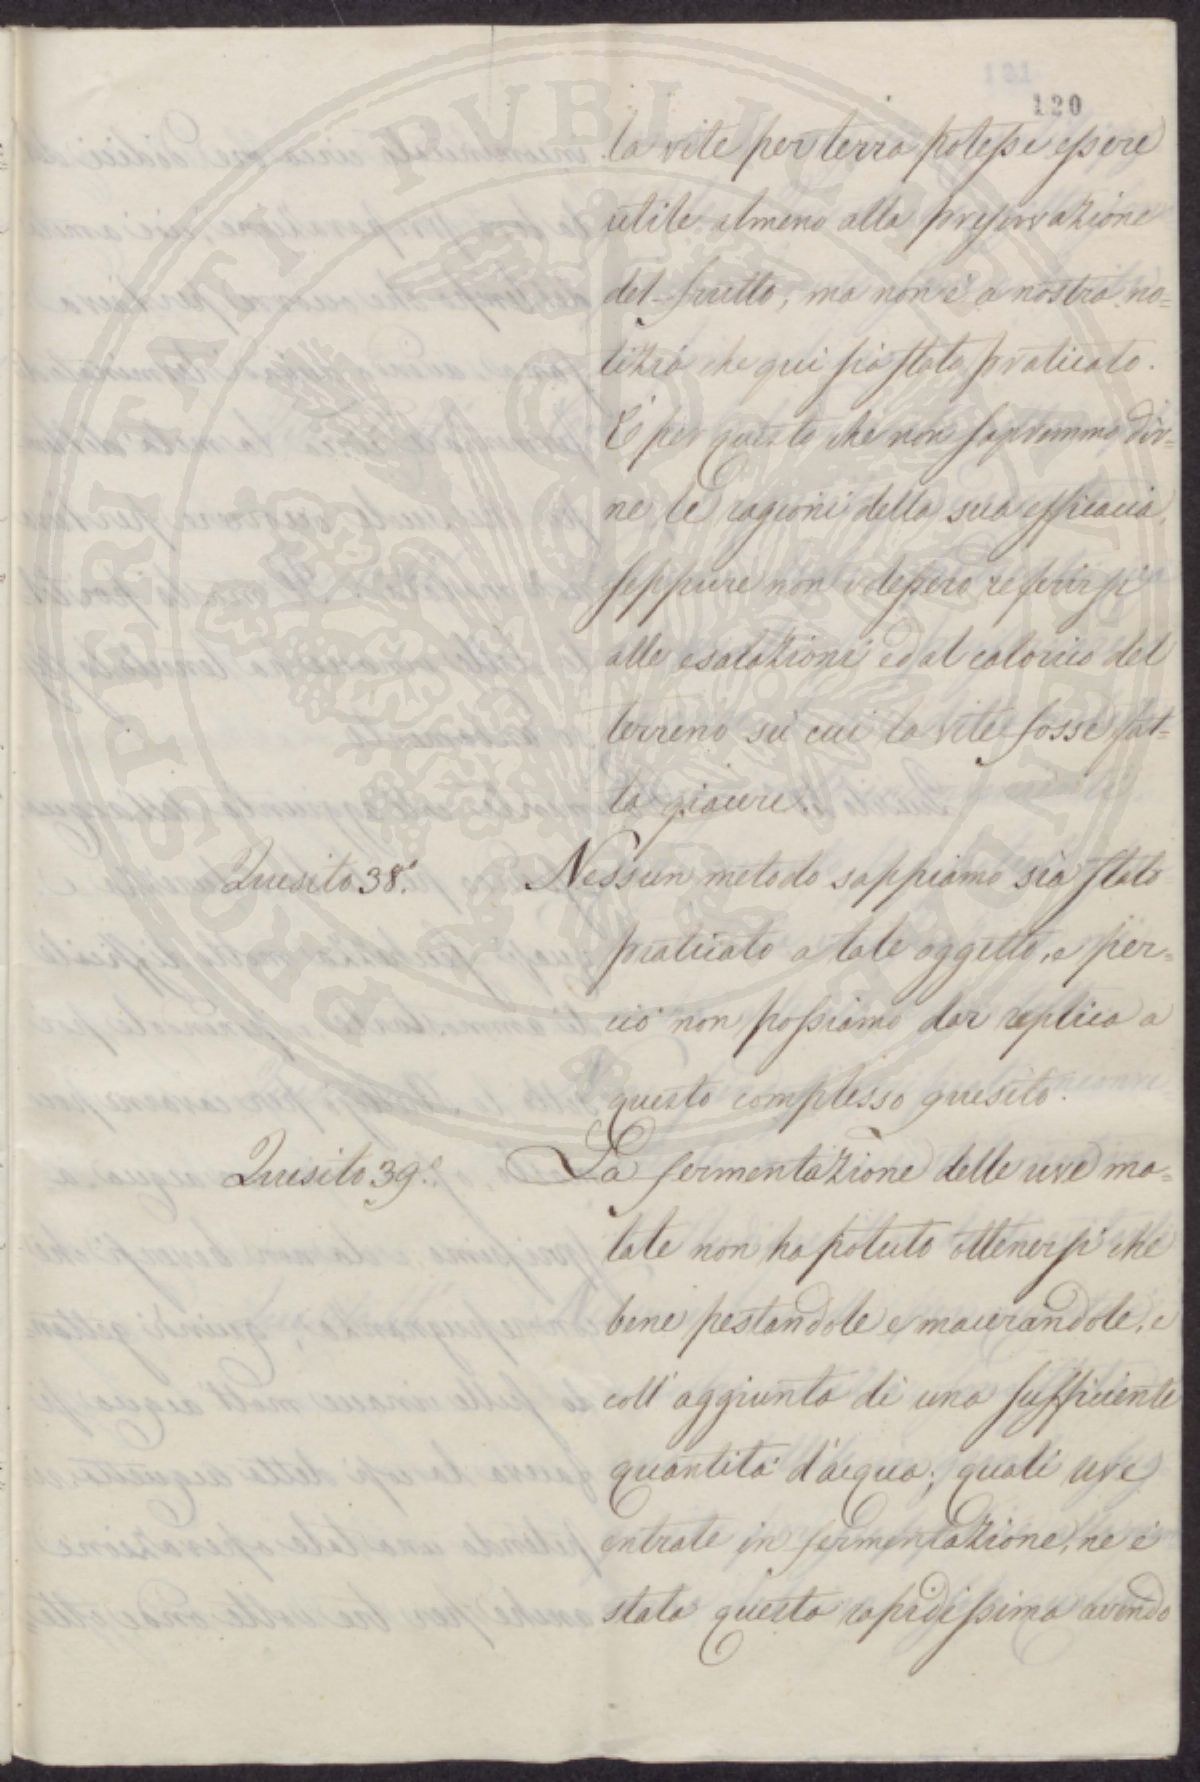 121
120
la vite per terra potesse essere
utile almeno alla preservazione
del frutto, ma non è a nostra no=
tizia che qui sia stato praticato.
È per questo che non sapremmo dir=
ne le ragioni della sua efficacia,
seppure non volessero referirsi
alle esalazioni ed al calorico del
terreno su cui la vite fosse fat=
ta giacere.
Quesito 38.° Nessun metodo sappiamo sia stato
praticato a tale oggetto, e per=
ciò non possiamo dar replica a
questo complesso quesito.
Quesito 39.° La fermentazione delle uve ma=
late non ha potuto ottenersi che
bene pestandole e macerandole, e
coll'aggiunta di una sufficiente
quantità d'acqua; quali uve
entrate in fermentazione, ne è
stata questa rapidissima avendo
PROSPERITATI PUBLICAE